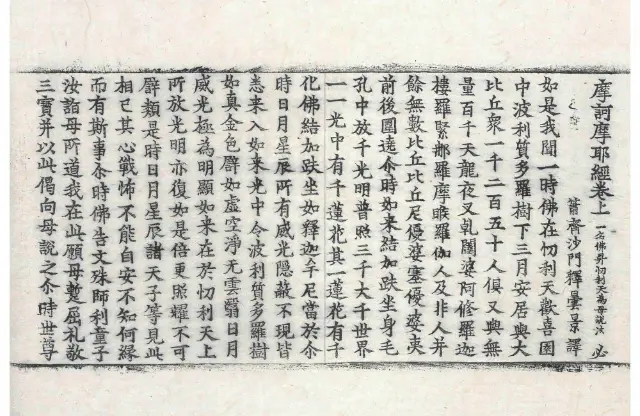 摩訶摩耶經卷上 一名佛昇忉利天為母說法 必
蕭齊沙門釋曇景譯
如是我聞一時佛在忉利天歡喜園
中波利質多羅樹下三月安居與大
比丘衆一千二百五十人俱又與無
量百千天龍夜叉乹闥婆阿修羅迦
樓羅緊那羅摩睺羅伽人及非人并
餘無數比丘比丘尼優婆塞優婆夷
前後圍遶尒時如来結加趺坐身毛
孔中放千光明普照三千大千世界
一一光中有千蓮花其一蓮花有千
化佛結加趺坐如釋迦牟尼當於尒
時日月星辰所有威光隱蔽不現皆
悉来入如来光中令波利質多羅樹
如真金色辟如虛空淨无雲翳日月
威光極為明顯如来在於忉利天上
所放光明亦復如是倍更照耀不可
辟類是時日月星辰諸天子等見此
相已其心戰怖不能自安不知何緣
而有斯事尒時佛告文殊師利童子
汝詣母所道我在此願母蹔屈礼敬
三寶并以此偈向母說之尒時世尊